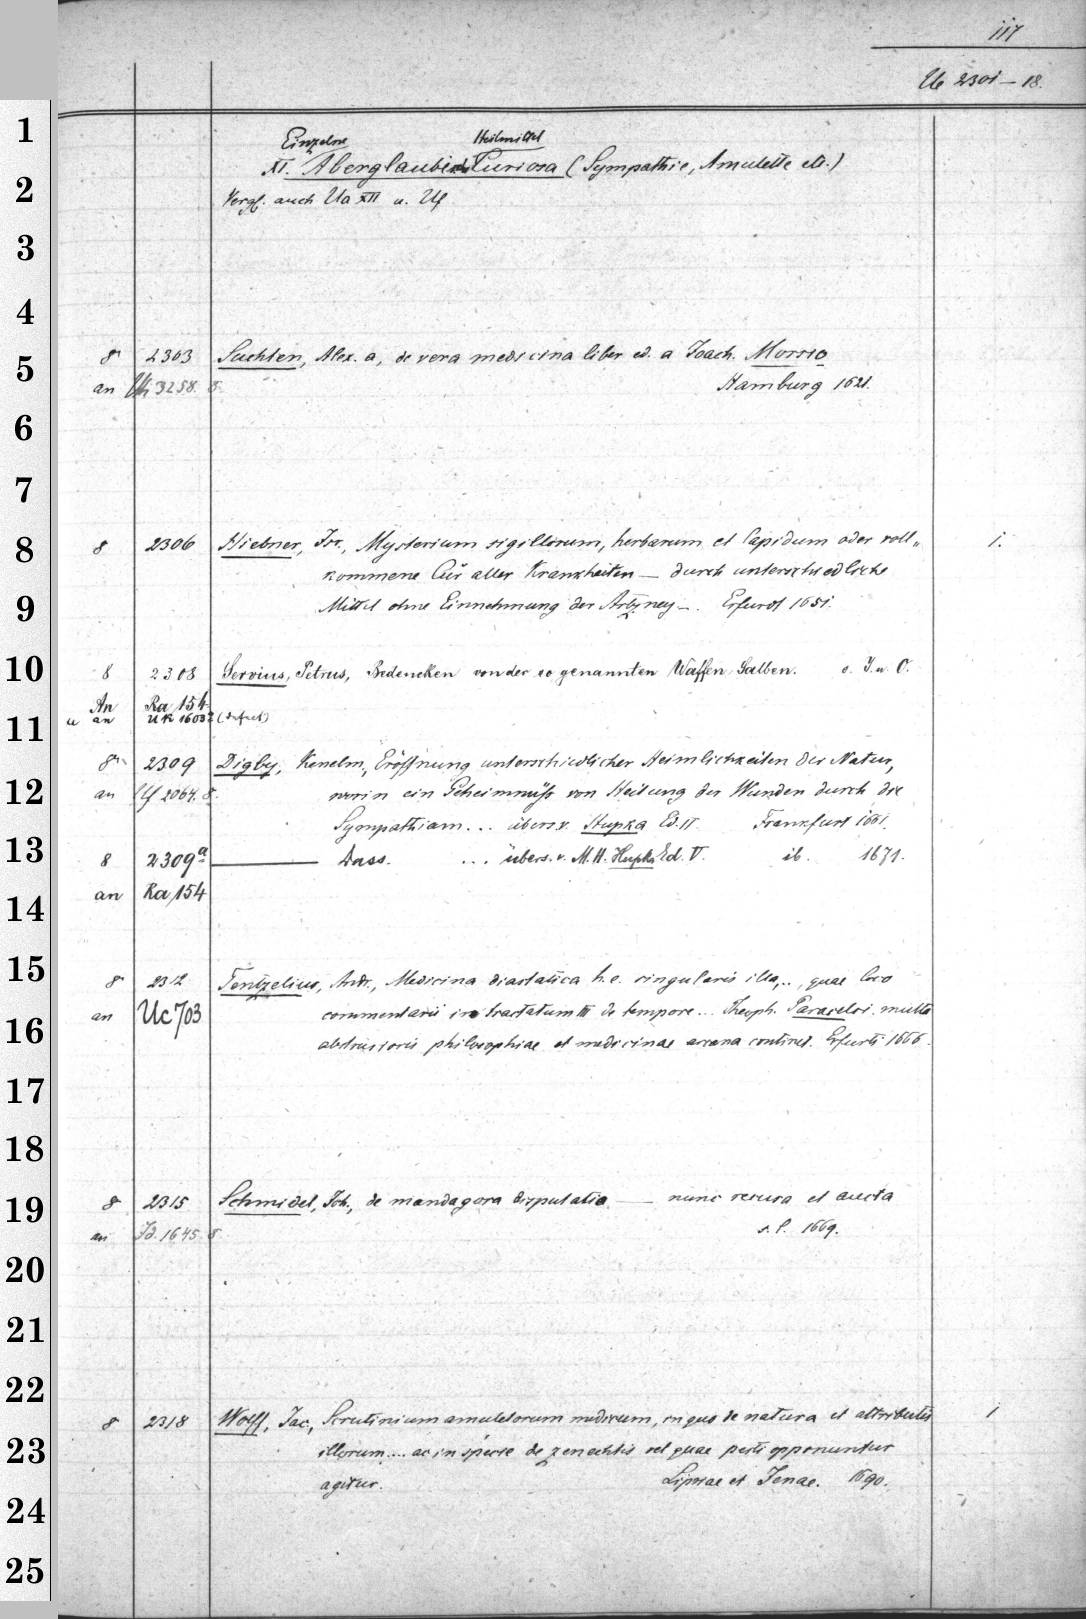 117
Ub 2301-18.
1
Einzelne Heilmittel
XI. Aberglaube Curiosa (Sympathie, Amulette etc.)
2
Vergl. auch Ua XII u. Uf
3
4
8° 2303 Suchten, Alex. a, de vera medicina liber ed. a Joach. Morsio
5
an Uh 3258. 8. Hamburg 1621.
6
7
8 2306 Hiebner, Isr., Mysterium sigillorum, herbarum et lapidum oder voll„ 1.
8
kommene Cur aller Krankheiten — durch unterschiedliche
9
Mittel ohne Einnehmung der Artzney —. Erfurdt 1651.
10
8 2308 Servius, Petrus, Bedencken von der so genannten Waffen Salben. o. J. u. O.
An Ra 154
11
u an Uk 16032 (defect)
8° 2309 Digby, Kenelm, Eröffnung unterschiedlicher Heimlichkeiten der Natur,
12
an Uf 2064. 8. worin ein Geheimnüss von Heilung der Wunden durch die
Sympathiam... übers. v. Hupka Ed. II. Frankfurt 1661.
13
8 2309a ——— Dass. ... übers. v. M. H. Hupka Ed. V. ib. 1671.
an Ra 154
14
15
8° 2312 Tentzelius, Andr., Medicina diastatica h. e. singularis illa,.., quae loco
an Uc 703 commentarii in tractatum III de tempore... Theoph. Paracelsi. multa
16
abstrusioris philosophiae et medicinae arcana continet. Erfurti 1666.
17
18
8 2315 Schmidel, Joh., de mandagora disputatio — nunc recusa et aucta
19
an Ja. 1645. 8. s. l. 1669.
20
21
22
8 2318 Wolff, Jac., Scrutinium amuletorum medicum, in quo de natura et attributis 1
23
illorum.... ac in specie de zenechtis vel quae pesti opponuntur
agitur. Lipsiae et Jenae. 1690.
24
25